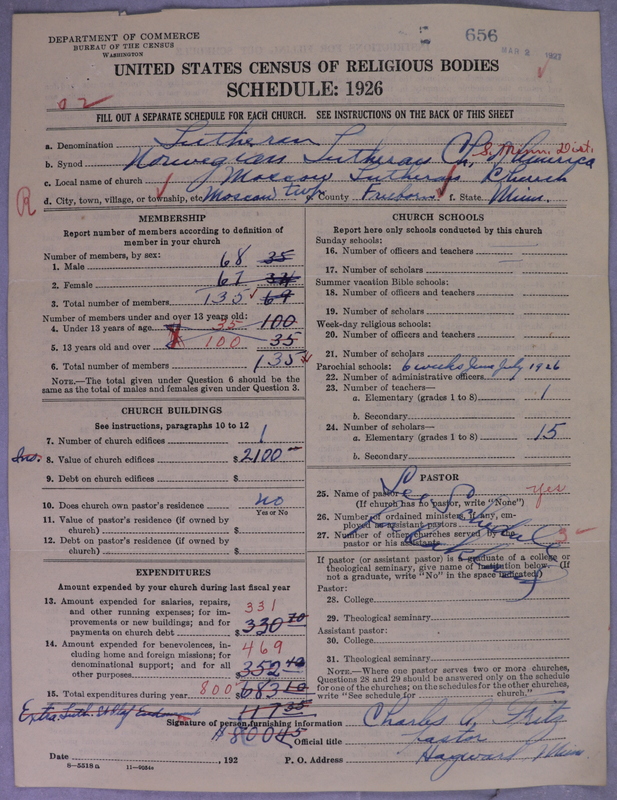 DEPARTMENT OF COMMERCE
BUREAU OF THE CENSUS
WASHINGTON
656
MAR 2 1927
UNITED STATES CENSUS OF RELIGIOUS BODIES
SCHEDULE: 1926
02
FILL OUT A SEPARATE SCHEDULE FOR EACH CHURCH. SEE INSTRUCTIONS ON THE BACK OF THIS SHEET
a. Denomination Lutheran
b. Synod Norwegian Lutheran Ch. of America S. Minn. Dist.
c. Local name of church Moscow Lutheran Church
R d. City, town, village, or township, etc. Moscow twp. County Freeborn f. State Minn.
MEMBERSHIP
Report number of members according to definition of
member in your church
Number of members, by sex:
1. Male 68 35
2. Female 67 34
3. Total number of members 135 69
Number of members under and over 13 years old:
4. Under 13 years of age 35 100
5. 13 years old and over 100 35
6. Total number of members 135
NOTE.—The total given under Question 6 should be the
same as the total of males and females given under Question 3.
CHURCH BUILDINGS
See instructions, paragraphs 10 to 12
7. Number of church edifices 1
Ins. 8. Value of church edifices $2100
9. Debt on church edifices $
10. Does church own pastor's residence no
Yes or No
11. Value of pastor's residence (if owned by
church) $
12. Debt on pastor's residence (if owned by
church) $
EXPENDITURES
Amount expended by your church during last fiscal year
13. Amount expended for salaries, repairs, 331
and other running expenses; for im-
provements or new buildings; and for
payments on church debt $330 70
14. Amount expended for benevolences, in- 469
cluding home and foreign missions; for
denominational support; and for all
other purposes $352 40
15. Total expenditures during year 800 $683 10
Extra Luth. St Olaf Endowment 117 35
$800 45
CHURCH SCHOOLS
Report here only schools conducted by this church
Sunday schools:
16. Number of officers and teachers
17. Number of scholars
Summer vacation Bible schools:
18. Number of officers and teachers
19. Number of scholars
Week-day religious schools:
20. Number of officers and teachers
21. Number of scholars
Parochial schools: 6 weeks June July 1926
22. Number of administrative officers
23. Number of teachers—
a. Elementary (grades 1 to 8) 1
b. Secondary
24. Number of scholars—
a. Elementary (grades 1 to 8) 15
b. Secondary
PASTOR
25. Name of pastor yes
(If church has no pastor, write "None")
26. Number of ordained ministers, if any, em-
ployed as assistant pastors
27. Number of other churches served by 3
pastor or his assistants
If pastor (or assistant pastor) is a graduate of a college or
theological seminary, give name of institution below. (If
not a graduate, write "No" in the space indicated)
Pastor:
28. College
29. Theological seminary
Assistant pastor:
30. College
31. Theological seminary
NOTE.—Where one pastor serves two or more churches,
Questions 28 and 29 should be answered only on the schedule
for one of the churches; on the schedules for the other churches,
write "See schedule for church."
Signature of person furnishing information Charles A. Fritz
Official title Pastor
Date , 192 P. O. Address Hayward Minn.
8—5518a 11—9954